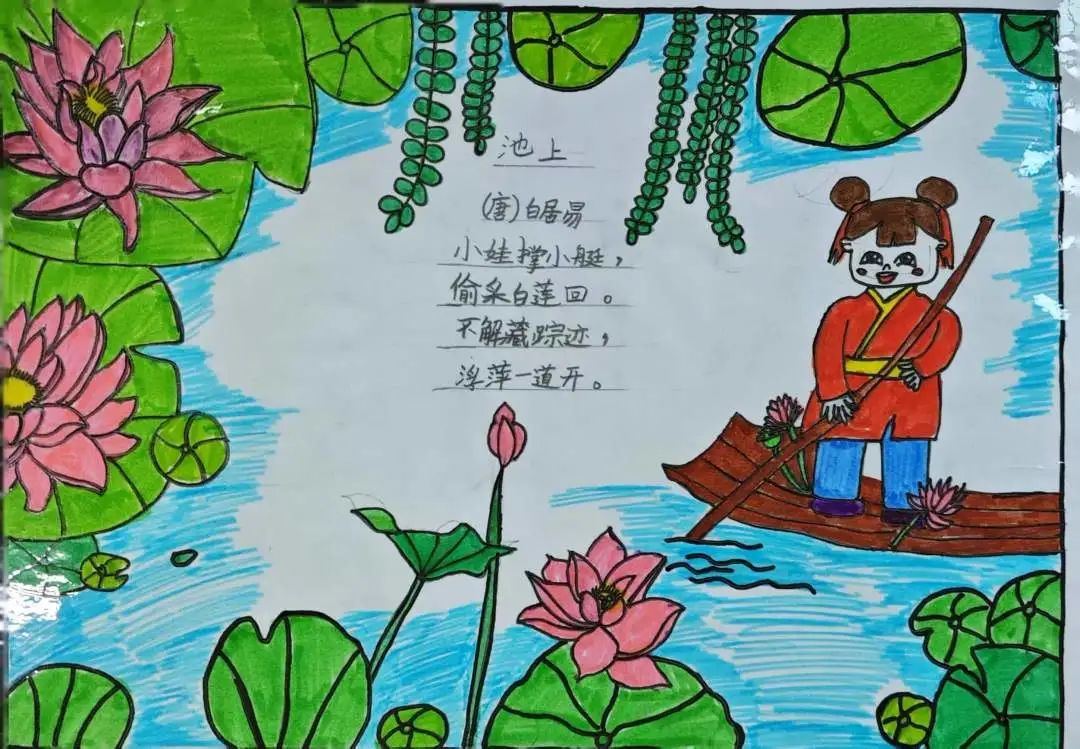 池上
(唐)白居易
小娃撑小艇，
偷采白莲回。
不解藏踪迹，
浮萍一道开。